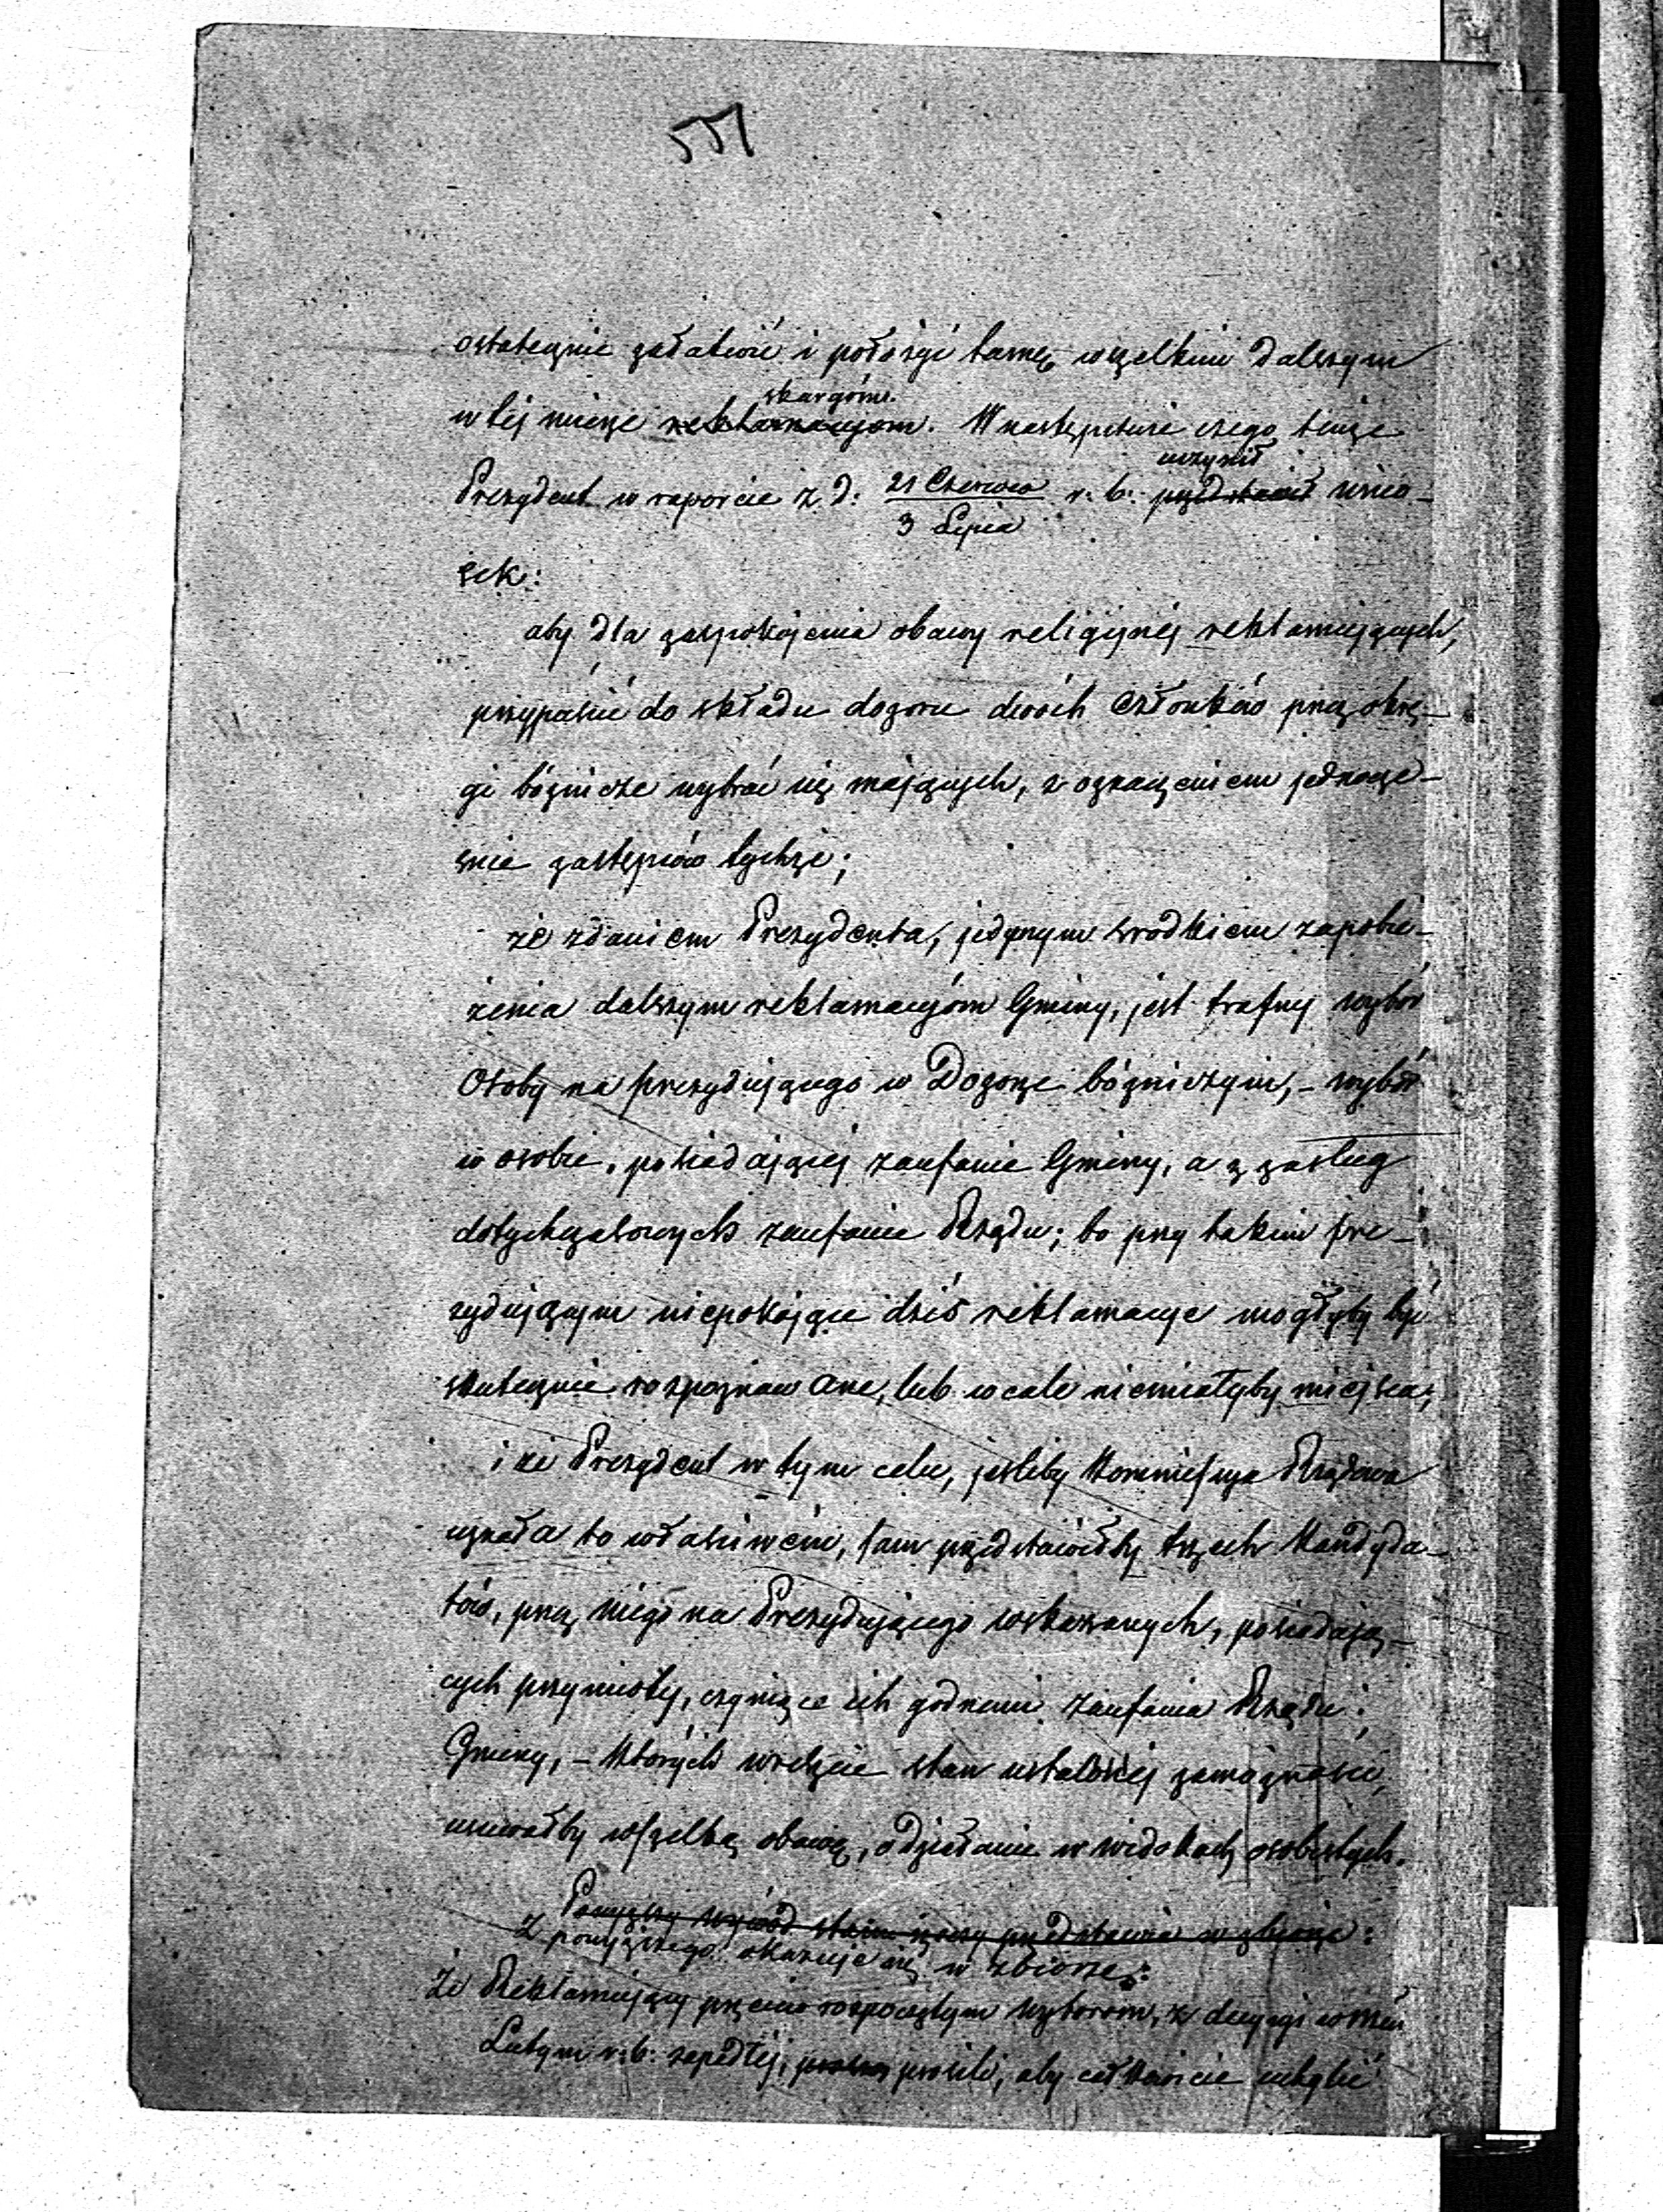 551
ostatecznie załatwić i położyć tamę wszelkim dalszym
skargom.
w tej mierze reklamacyom. W następstwie czego tenże
uczynił
Prezydent w raporcie z d: 21 Czerwca / 3 Lipca r: b: przedstawił wnio-
sek:
aby dla zaspokojenia obawy religijnéj reklamujących,
przypuścić do składu dozoru dwóch Członków przez okrę-
gi bóźnicze wybrać się mających, z oznaczeniem jednocze-
śnie zastępców tychże;
że zdaniem Prezydenta, jedynym środkiem zapobie-
żenia dalszym reklamacyom Gminy, jest trafny wybór
Osoby na prezydującego w Dozorze bóźniczym, - wybór
w osobie, posiadającej zaufanie Gminy, a z zasług
dotychczasowych zaufanie Rządu; bo przy takim pre-
zydującym niepokojące dziś reklamacye mogłyby być
skutecznie rozpoznawane, lub wcale niemiałyby miejsca;
i że Prezydent w tym celu, jeśliby Kommissya Rządowa
uznała to właściwém, sam przedstawiłby trzech Kandyda-
tów, przez niego na Prezydującego wskazanych, posiadają-
cych przymioty, czyniące ich godnemi zaufania Rządu i
Gminy, - których wreszcie stan ustalonej zamożności,
usuwałby wszelką obawę, o działanie w widokach osobistych.
Powyższy wywód stanu rzeczy przedstawia w zbiorze:
Z powyższego okazuje się w zbiorze:
że Reklamujący przeciw rozpoczętym wyborom, z decyzyi w
Lutym r: b: zapadłéj, prosili, aby całkowicie uchylić